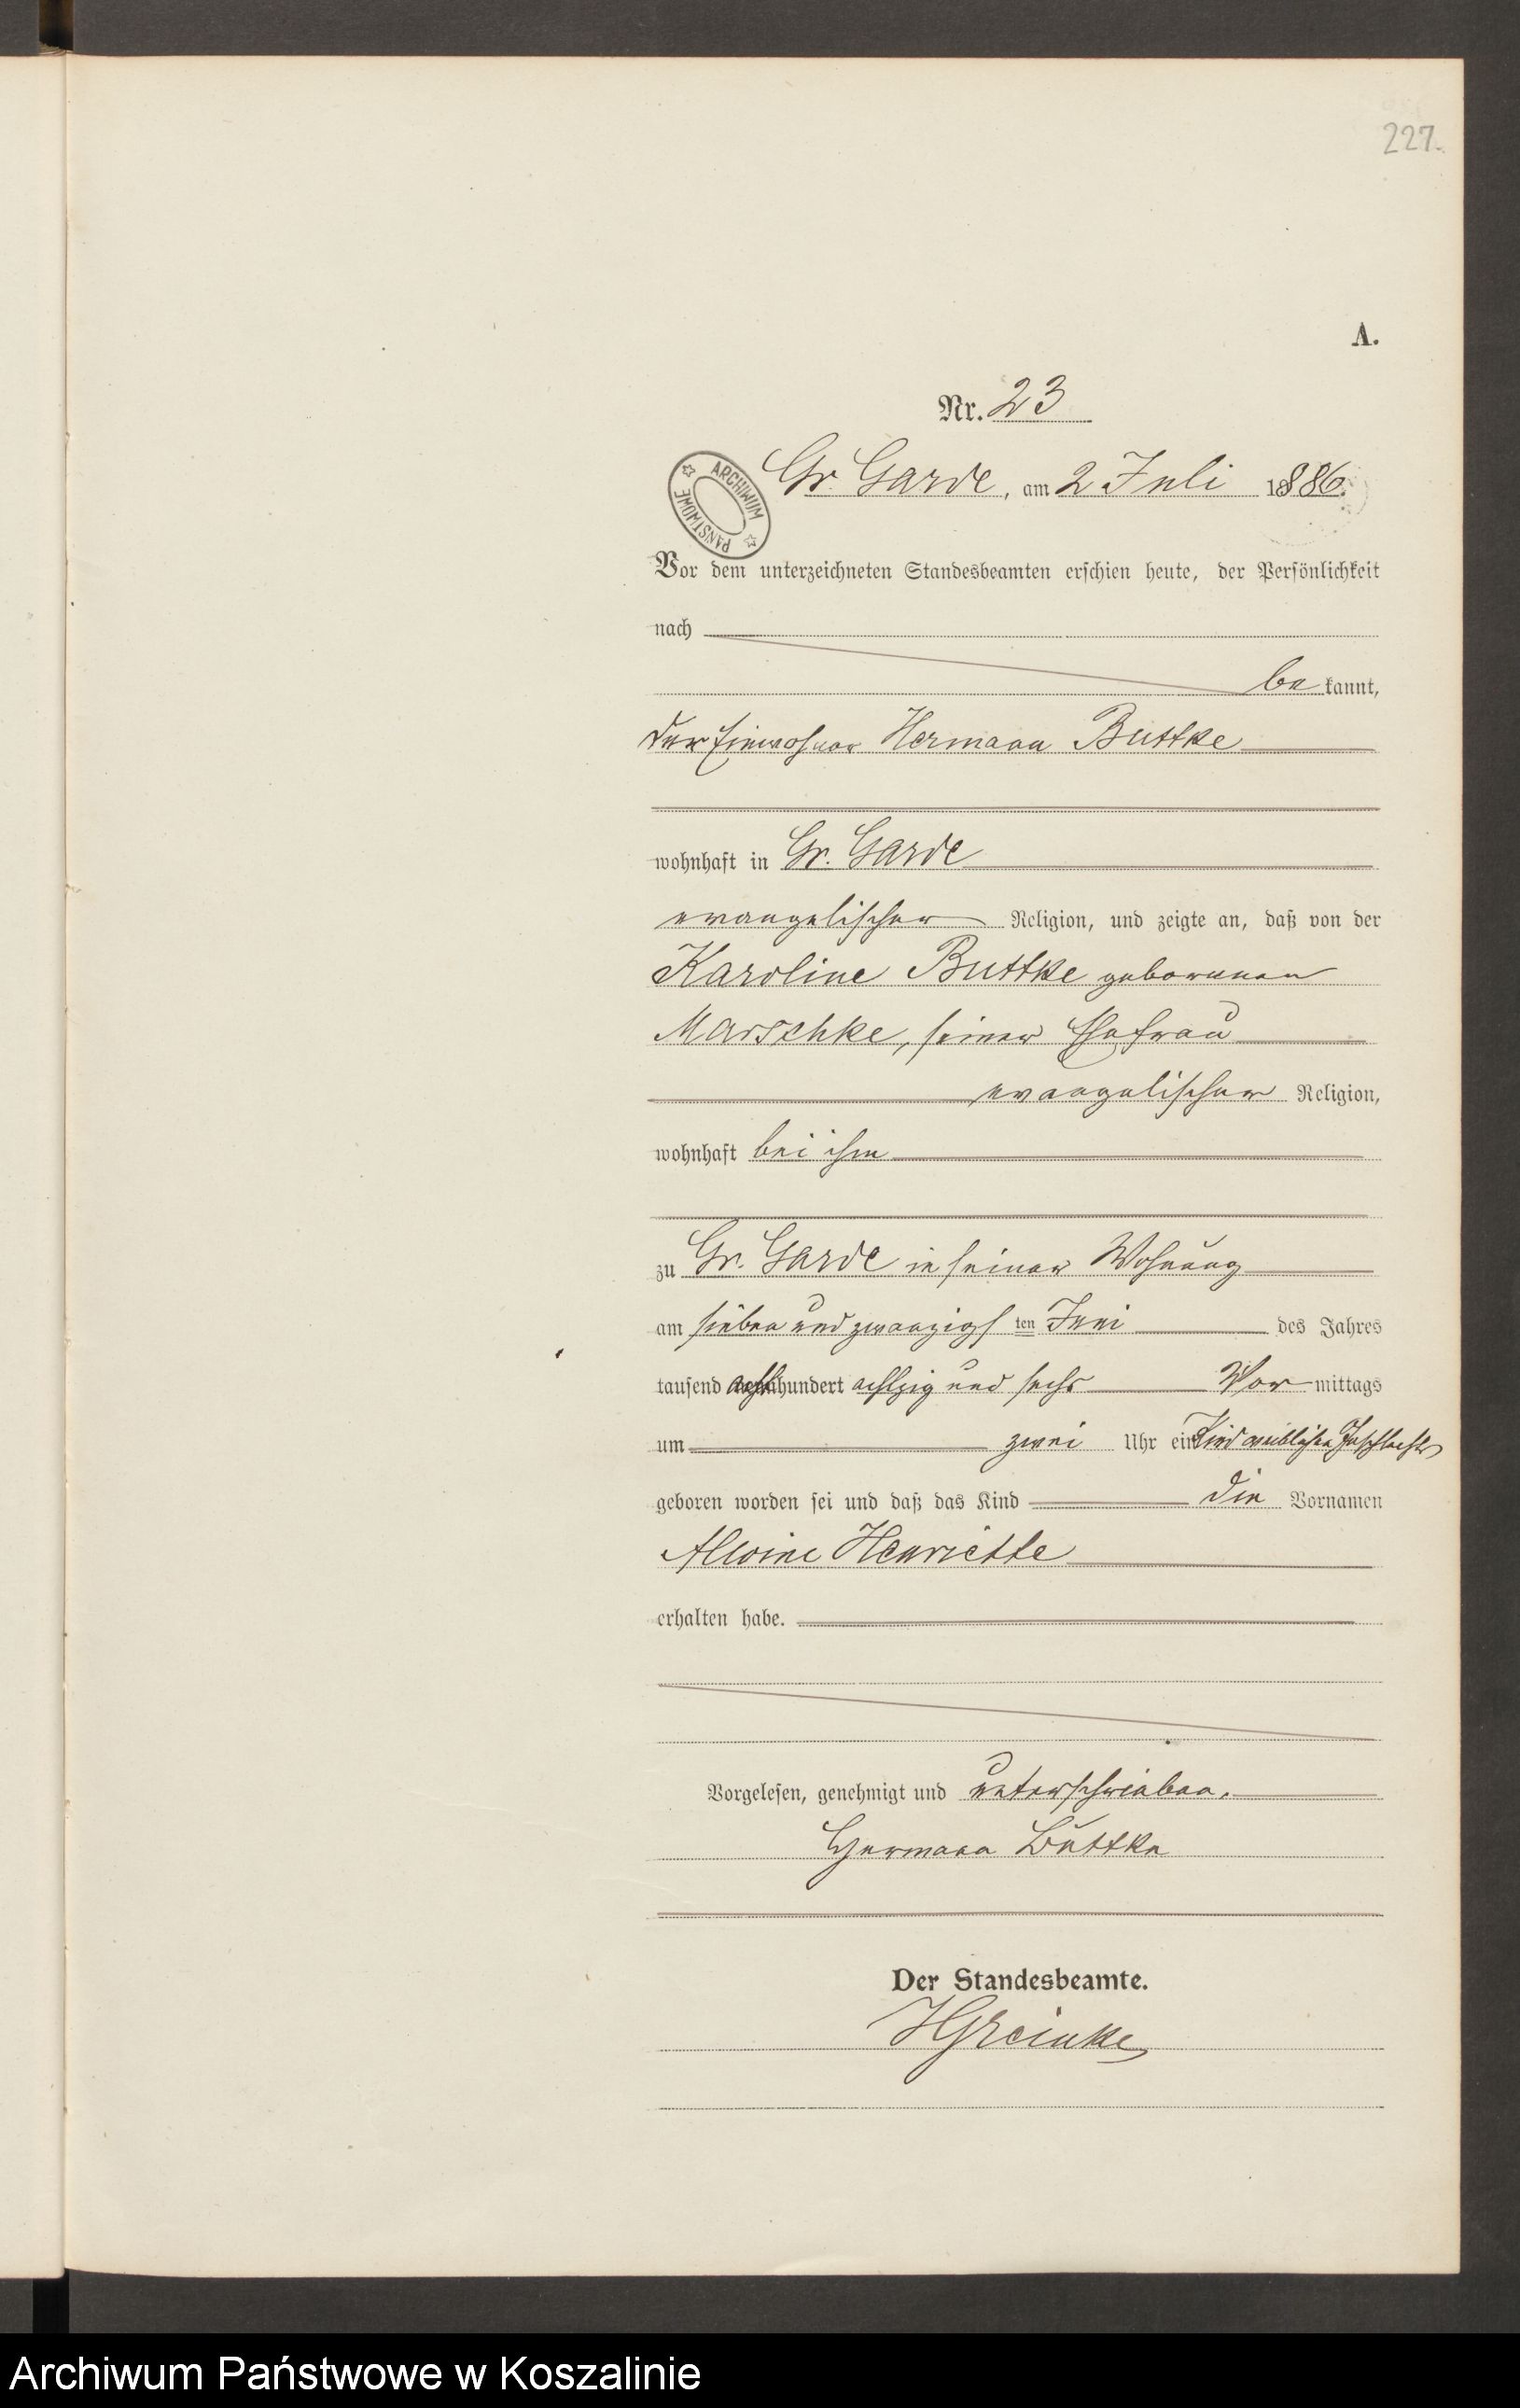 227.
A.
Nr. 23
ARCHIWUM PAŃSTWOWE
Gr. Garde, am 2 Juli 1886.
Vor dem unterzeichneten Standesbeamten erschien heute, der Persönlichkeit
nach
be kannt,
der Einwohner Hermann Buttke
wohnhaft in Gr. Garde
evangelischer Religion, und zeigte an, daß von der
Karoline Buttke geborenen
Marschke, seiner Ehefrau
evangelischer Religion,
wohnhaft bei ihm
zu Gr. Garde in seiner Wohnung
am sieben und zwanzigsten Juni des Jahres
tausend achthundert achtzig und sechs Vor mittags
um zwei Uhr ein Kind weiblichen Geschlechts
geboren worden sei und daß das Kind die Vornamen
Alwine Henriette
erhalten habe.
Vorgelesen, genehmigt und unterschrieben.
Hermann Buttke
Der Standesbeamte.
HGreinke
Archiwum Państwowe w Koszalinie